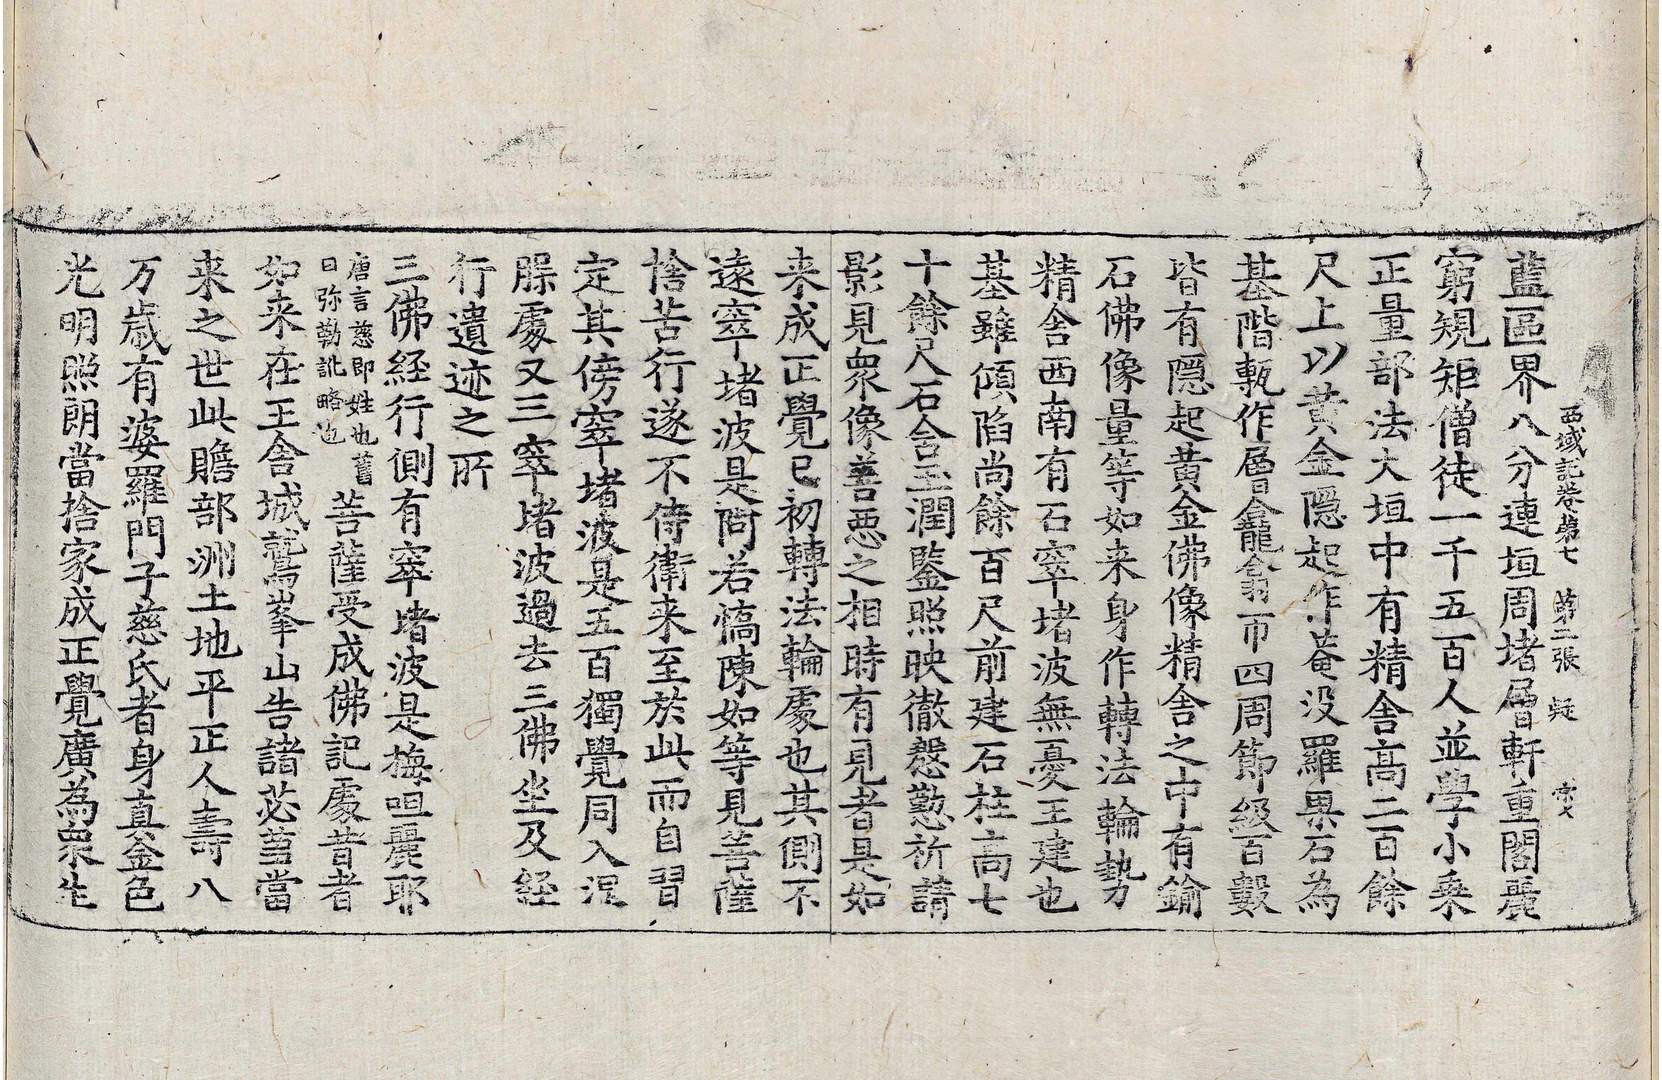 西域記卷第七 第二張 疑
藍區界八分連垣周堵層軒重閣麗
窮規矩僧徒一千五百人並學小乘
正量部法大垣中有精舍高二百餘
尺上以黃金隱起作菴沒羅果石為
基階甎作層龕翕帀四周節級百數
皆有隱起黃金佛像精舍之中有鍮
石佛像量等如来身作轉法輪勢
精舍西南有石窣堵波無憂王建也
基雖傾陷尚餘百尺前建石柱高七
十餘尺石含玉潤鑒照映徹慇懃祈請
影見眾像善惡之相時有見者是如
来成正覺已初轉法輪處也其側不
遠窣堵波是阿若憍陳如等見菩薩
捨苦行遂不侍衛来至於此而自習
定其傍窣堵波是五百獨覺同入涅
槃處又三窣堵波過去三佛坐及経
行遺迹之所
三佛経行側有窣堵波是梅呾麗耶
唐言慈即姓也舊
曰弥勒訛略也
菩薩受成佛記處昔者
如来在王舍城鷲峯山告諸苾蒭當
来之世此贍部洲土地平正人壽八
万歲有婆羅門子慈氏者身真金色
光明照朗當捨家成正覺廣為眾生